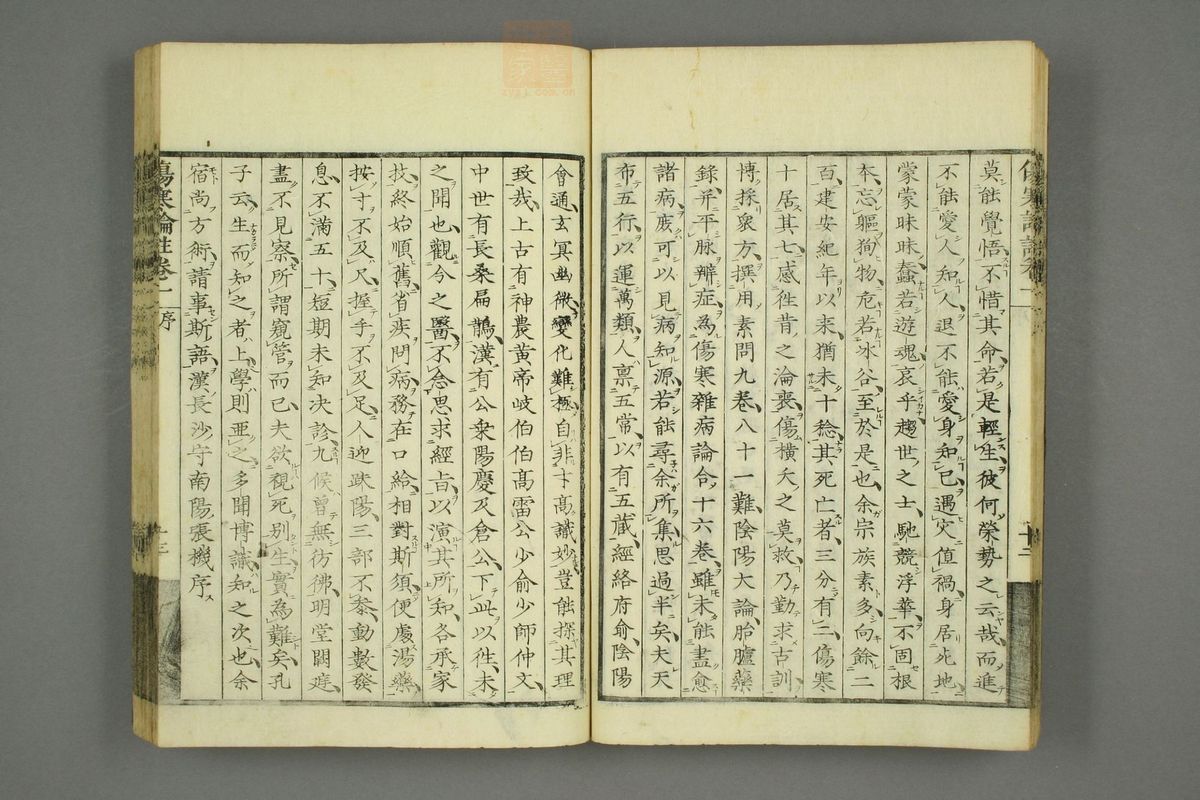 莫能覺悟不惜其命若是輕生彼何榮勢之云哉而進
不能愛人知人退不能愛身知己遇灾值禍身居死地
蒙蒙昧昧蠢若遊魂哀乎趨世之士馳競浮華不固根
本忘軀狥物危若冰谷至於是也余宗族素多向餘二
百建安紀年以来猶未十稔其死亡者三分有二傷寒
十居其七感徃昔之淪喪傷横夭之莫救乃勤求古訓
博採衆方撰用素問九卷八十一難陰陽大論胎臚藥
錄并平脉辨症為傷寒雜病論合十六卷雖未能盡愈
諸病庻可以見病知源若能尋余所集思過半矣夫天
布五行以運萬類人禀五常以有五蔵經絡府俞陰陽
會通玄冥幽微變化難極自非才髙識妙豈能探其理
致哉上古有神農黄帝岐伯伯髙雷公少俞少師仲文
中世有長桑扁鵲漢有公椉陽慶及倉公下此以徃未
之聞也觀今之醫不念思求經㫖以演其所知各承家
技終始順舊省疾問病務在口給相對斯須便處湯藥
按寸不及尺握手不及足人迎趺陽三部不叅動數發
息不滿五十短期未知决診九候曽無彷彿明堂闕庭
盡不見察所謂窺管而已夫欲視死别生實為難矣孔
子云生而知之者上學則亜之多聞博識知之次也余
宿尚方術請事斯語漢長沙守南陽張機序
傷寒論註卷一 序
十三